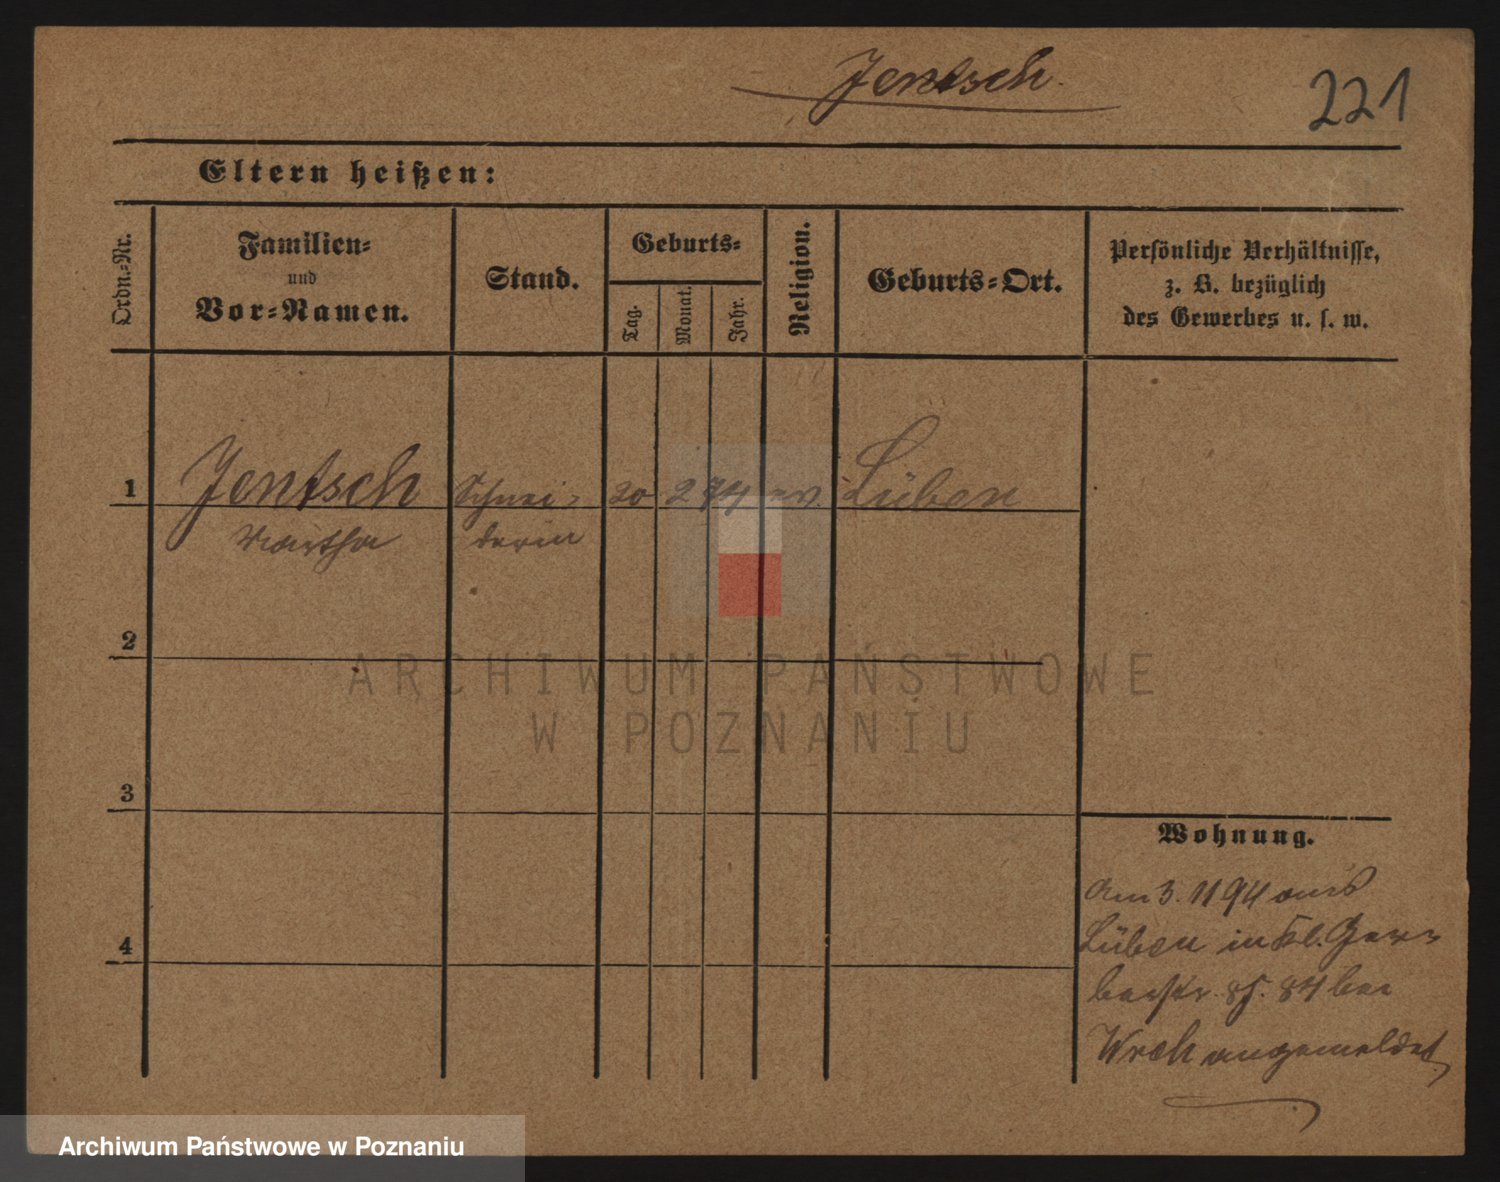 Jentsch.
221
Eltern heißen:
Ordn.-Nr.
Familien-
und
Vor-Namen.
Stand.
Geburts-
Tag.
Monat.
Jahr.
Religion.
Geburts-Ort.
Persönliche Verhältnisse,
z. B. bezüglich
des Gewerbes u. s. w.
1 Jentsch Schnei- 20 2 74 ev. Lüben
Martha derin
2
ARCHIWUM PAŃSTWOWE
W POZNANIU
3
Wohnung.
Am 3. 11 94 aus
Lüben in Kl. Gerber
4
bei
angemeldet
Archiwum Państwowe w Poznaniu